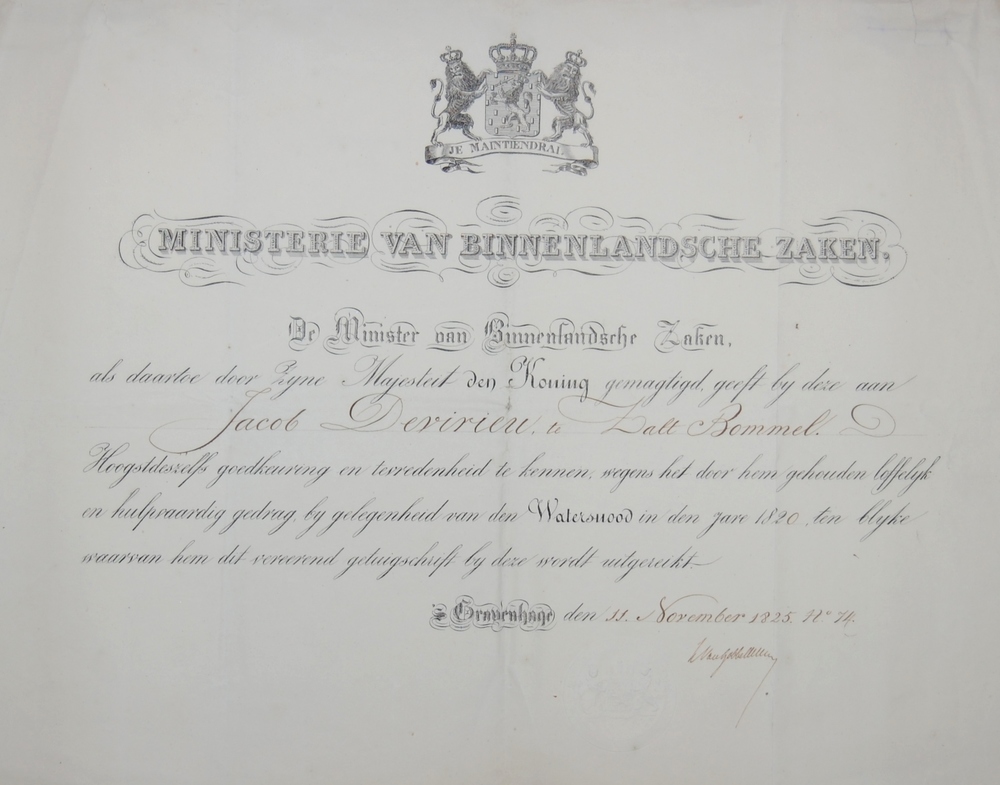 JE MAINTIENDRAI.
MINISTERIE VAN BINNENLANDSCHE ZAKEN.
De Minister van Binnenlandsche Zaken,
als daartoe door Zyne Majesteit den Koning gemagtigd, geeft by deze aan
Jacob Devirieu, te Zalt Bommel.
Hoogstdeszelfs goedkeuring en tevredenheid te kennen, wegens het door hem gehouden loffelyk
en hulpvaardig gedrag, by gelegenheid van den Watersnood in den jare 1820, ten blyke
waarvan hem dit vereerend getuigschrift by deze wordt uitgereikt.—
's Gravenhage den 11. November 1825. No 74.